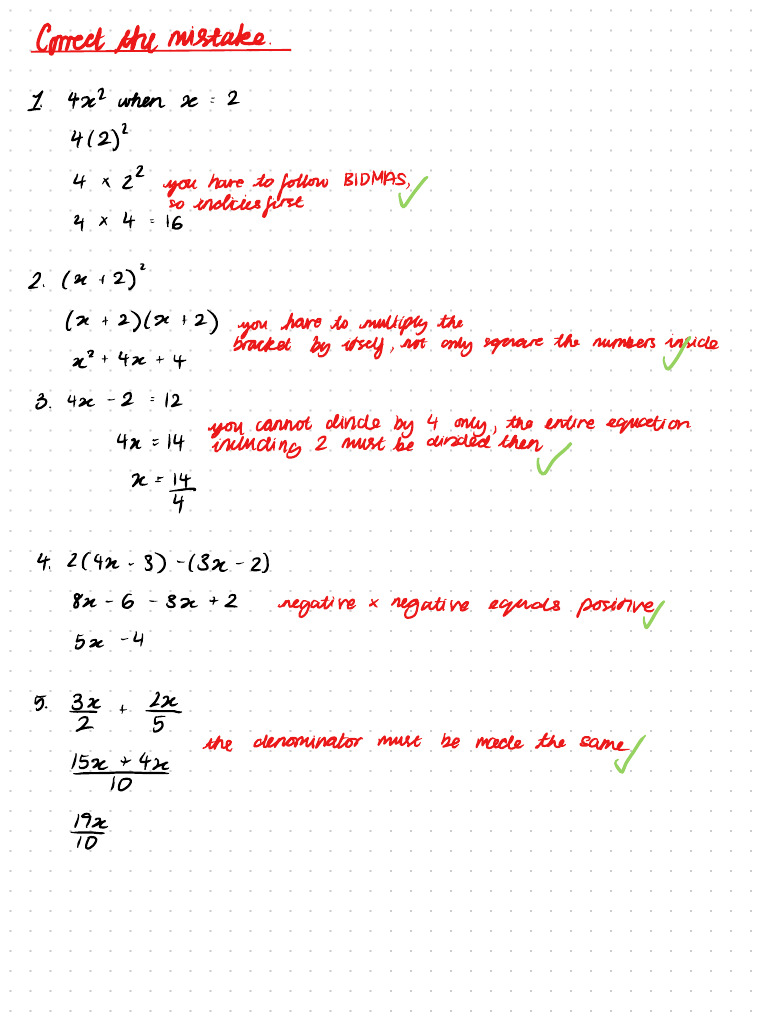 Correct the mistake.
1. 4x² when x = 2
4(2)²
4 × 2² you have to follow BIDMAS,
so indicies first
4 × 4 = 16
2. (x + 2)²
(x + 2)(x + 2) you have to multiply the
bracket by itself, not only square the numbers inside
x² + 4x + 4
3. 4x - 2 = 12
you cannot divide by 4 only, the entire equation
4x = 14 including 2 must be divided then
x = 14/4
4. 2(4x - 3) - (3x - 2)
8x - 6 - 3x + 2 negative × negative equals positive
5x - 4
5. 3x/2 + 2x/5
the denominator must be made the same
15x + 4x/10
19x/10